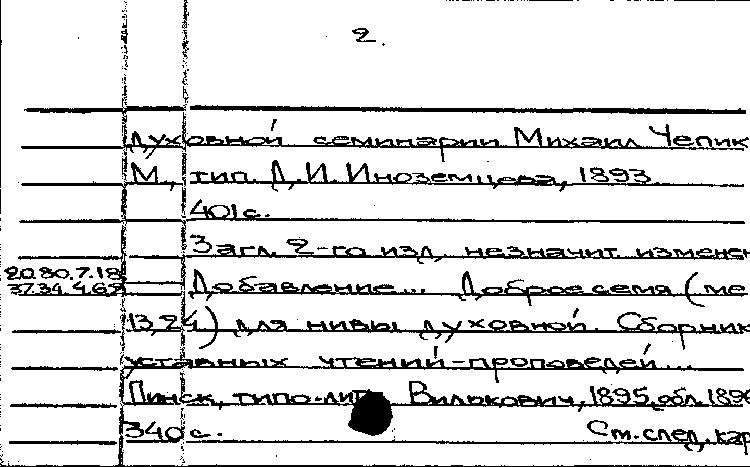 2.
духовной семинарии Михаил Чепик
М., тип. Д.И. Иноземцева, 1893.
401с.
Загл. 2-го изд. незначит. изменен
20.80.7.18
37.34.4.62
Добавление... Доброе семя (ме
13,24) для нивы духовной. Сборник
уставных чтений-проповедей...
Пинск, типо-лит. Вилькович, 1895, обл. 1896
340с. См. след. кар